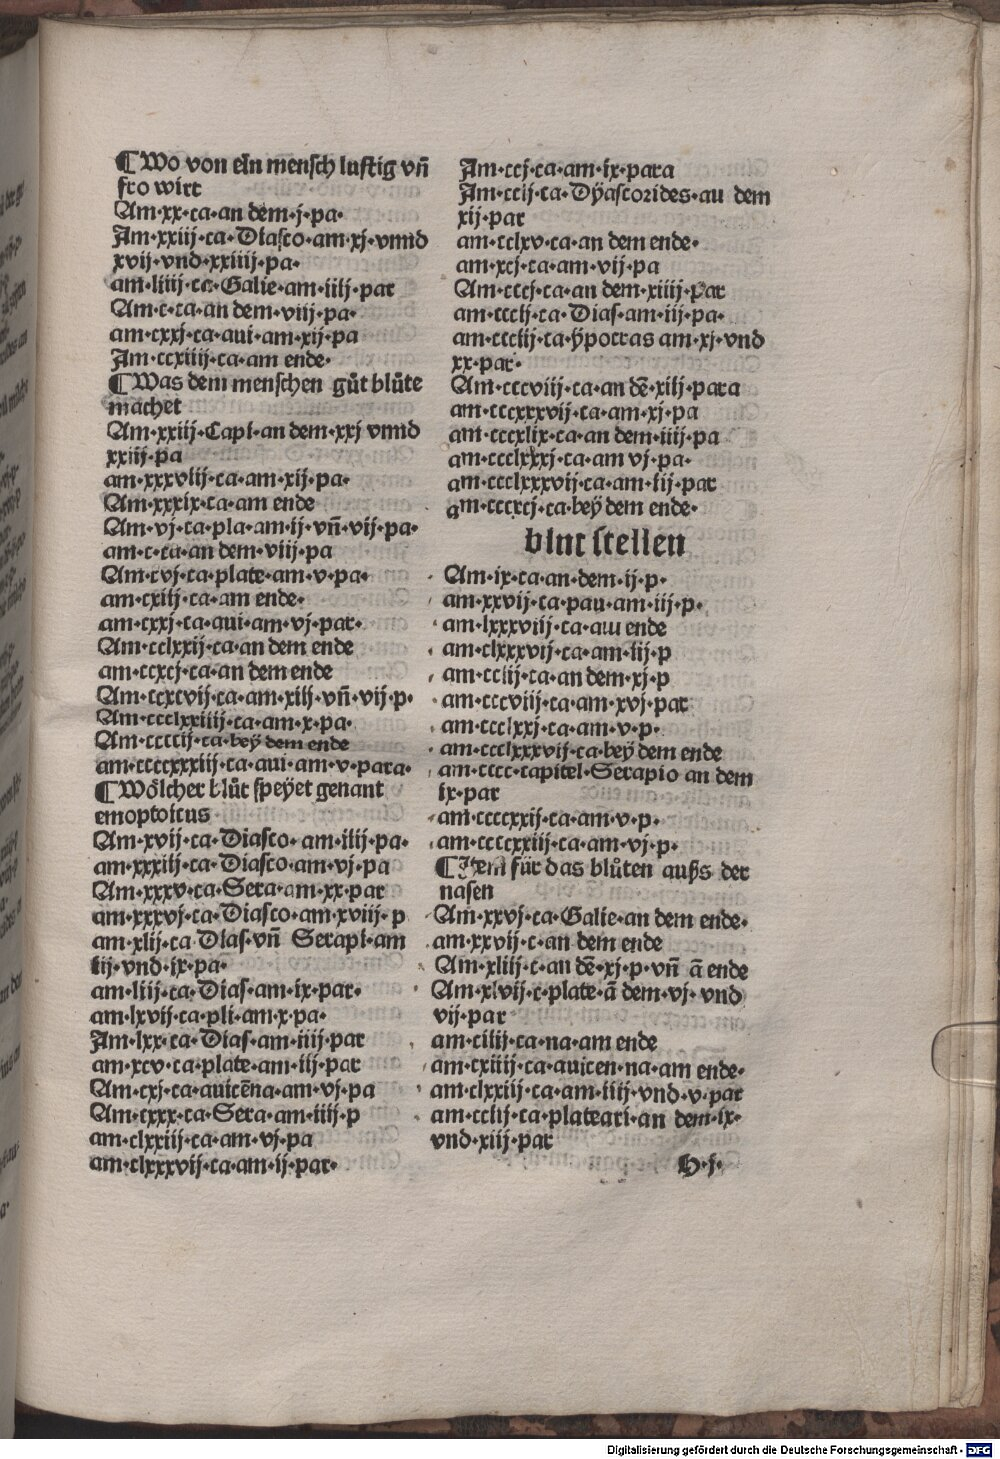 ¶Wo von ein mensch lustig vn̄
fro wirt
Am·xx·ca·an dem·j·pa·
Am·xxiij·ca·Diasco·am·xj·vnnd
xvij·vnd·xxiiij·pa·
am·liiij·ca·Galie·am·iiij·par
Am·c·ca·an dem·viij·pa·
am·cxxj·ca·aui·am·xij·pa
Am·ccxiiij·ca·am ende·
¶Was dem menschen gůt blůte
machet
Am·xxiij·Capi·an dem·xxj vnnd
xxiij·pa
am·xxxviij·ca·am·xij·pa·
Am·xxxix·ca·am ende
Am·vj·ca·pla·am·ij·vn̄·vij·pa·
am·c·ca·an dem·viij·pa
Am·cvj·ca·plate·am·v·pa·
am·cxiij·ca·am ende·
am·cxxj·ca·aui·am·vj·par·
Am·cclxxij·ca·an dem ende
am·ccxcj·ca·an dem ende
Am·ccxcvij·ca·am·xiij·vn̄·vij·p·
Am·ccclxxiiij·ca·am·x·pa·
Am·ccccij·ca·bey dem ende
am·ccccxxxiij·ca·aui·am·v·para·
¶Wölcher blůt speyet genant
emoptoicus
Am·xvij·ca·Diasco·am·iiij·pa·
am·xxxiij·ca·Diasco·am·vj·pa
Am·xxxv·ca·Sera·am·xx·par
am·xxxvj·ca·Diasco·am·xviij·p
am·xlij·ca Dias·vn̄ Serapi·am
iij·vnd·ix·pa·
am·liij·ca·Dias·am·ix·par·
am·lxvij·ca·pli·am·x·pa·
Am·lxx·ca·Dias·am·iiij·par
am·xcv·ca·plate·am·iij·par
Am·cxj·ca·auicēna·am·vj·pa
Am·cxxx·ca·Sera·am·iiij·p
am·clxxiij·ca·am·vj·pa
am·clxxxvij·ca·am·ij·par·
Am·ccj·ca·am·ix·para
Am·ccij·ca·Dyascorides·au dem
xij·par
am·cclxv·ca·an dem ende·
am·xcj·ca·am·vij·pa
Am·cccj·ca·an dem·xiiij·par
am·cccij·ca·Dias·am·iij·pa·
am·ccciij·ca·ÿpocras am·xj·vnd
xx·par·
Am·cccviij·ca·an dē·xiij·para
am·cccxxxvij·ca·am·xj·pa
am·cccxlix·ca·an dem·iiij·pa
am·ccclxxxj·ca·am vj·pa·
am·ccclxxxvij·ca·am·iij·par
am·cccxcj·ca·bey dem ende·
blut stellen
Am·ix·ca·an·dem·ij·p·
am·xxvij·ca·pau·am·iij·p·
am·lxxxviij·ca·aui ende
am·clxxxvij·ca·am·iij·p
am·cciij·ca·an dem·xj·p
am·cccviij·ca·am·xvj·par
am·ccclxxj·ca·am·v·p·
am·ccclxxxvij·ca·bey dem ende
am·cccc·capitel·Serapio an dem
ix·par
am·ccccxxij·ca·am·v·p·
am·ccccxxiij·ca·am·vj·p·
¶Item für das blůten auß der
nasen
Am·xxvj·ca·Galie·an dem ende·
am·xxvij·c·an dem ende
Am·xliij·c·an dē·xj·p·vn̄ ā ende
Am·xlvij·c·plate·ā dem·vj·vnd
vij·par
am·ciiij·ca·na·am ende
am·cxiiij·ca·auicen·na·am ende·
am·clxxiij·ca·am·iiij·vnd·v·par
am·cciij·ca·plateari·an dem·ix·
vnd·xiij·par
H·j·
Digitalisierung gefördert durch die Deutsche Forschungsgemeinschaft - DFG